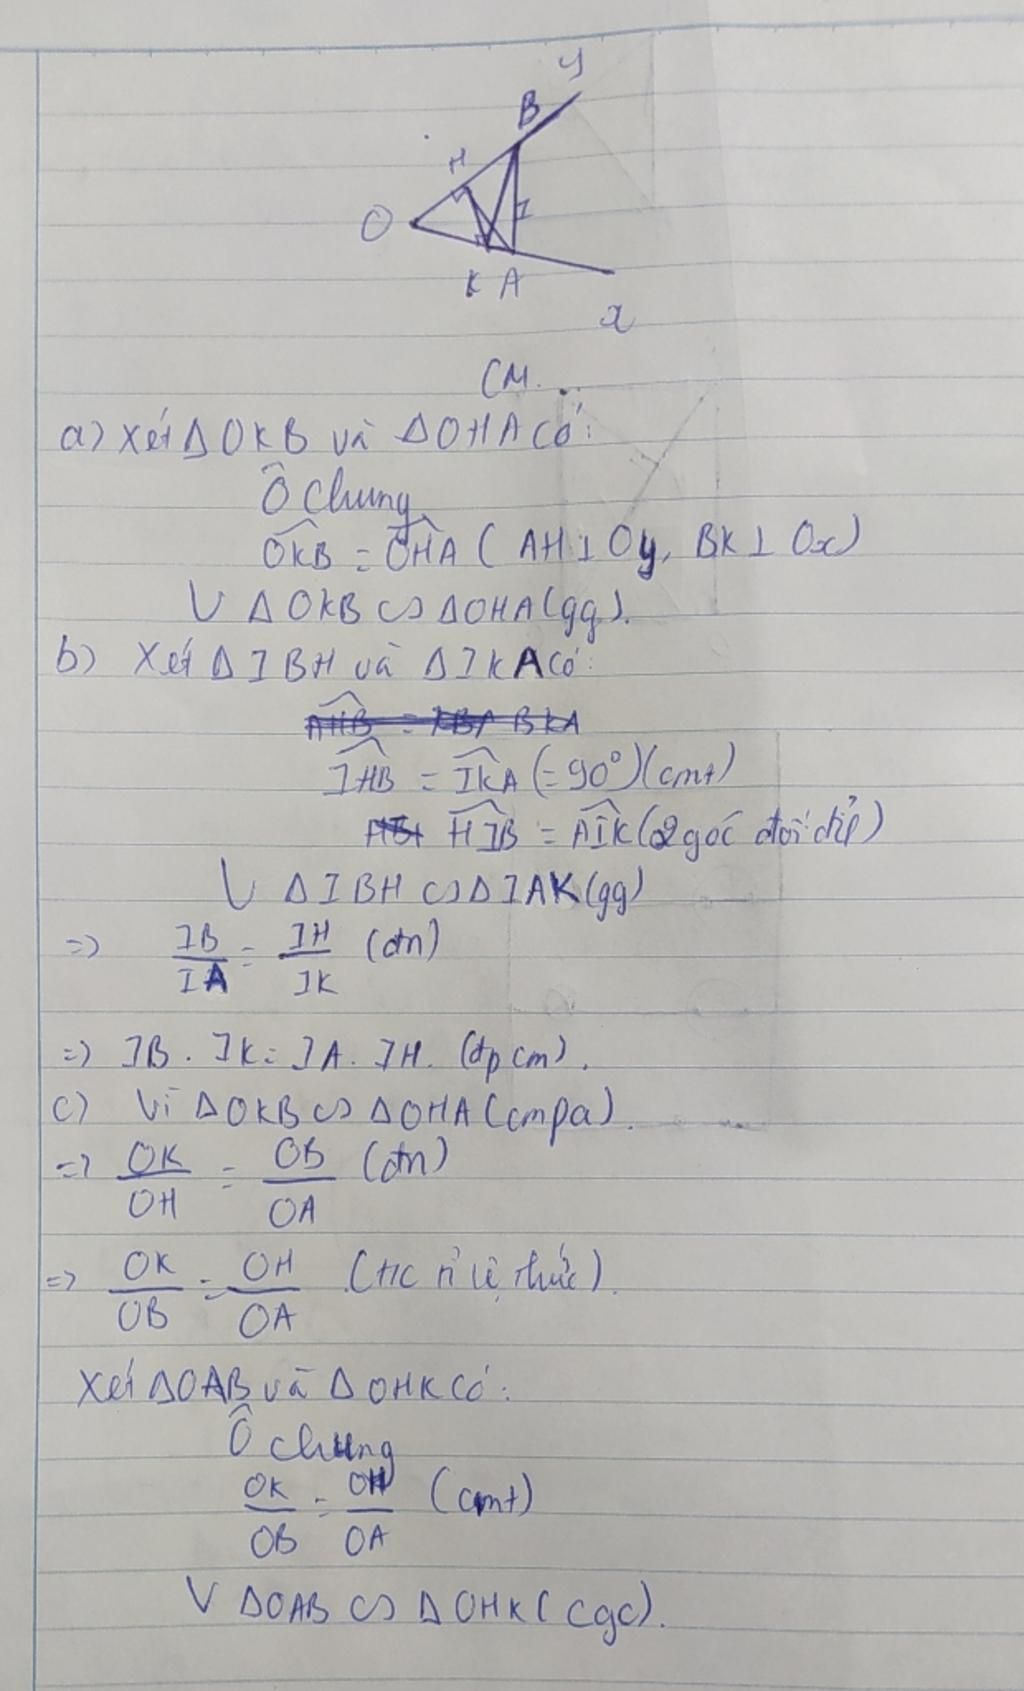 y
B
H
O
I
K A
x
CM.
a) Xét Δ OKB và Δ OHA có:
Ô chung
OKB = OHA ( AH ⊥ Oy, BK ⊥ Ox)
V Δ OKB ∽ Δ OHA (gg).
b) Xét Δ IBH và Δ IKA có:
IHB = IKA (= 90°) (cmt)
HIB = AIK (2 góc đối đỉ)
V Δ IBH ∽ Δ IAK (gg)
=> IB/IA = IH/IK (đn)
=> IB . IK = IA . IH. (đpcm).
c) Vì Δ OKB ∽ Δ OHA (cmpa).
=> OK/OH = OB/OA (đn)
=> OK/OB = OH/OA (t/c tỉ lệ thức).
Xét Δ OAB và Δ OHK có:
Ô chung
OK/OB = OH/OA (cmt)
V Δ OAB ∽ Δ OHK ( cgc).